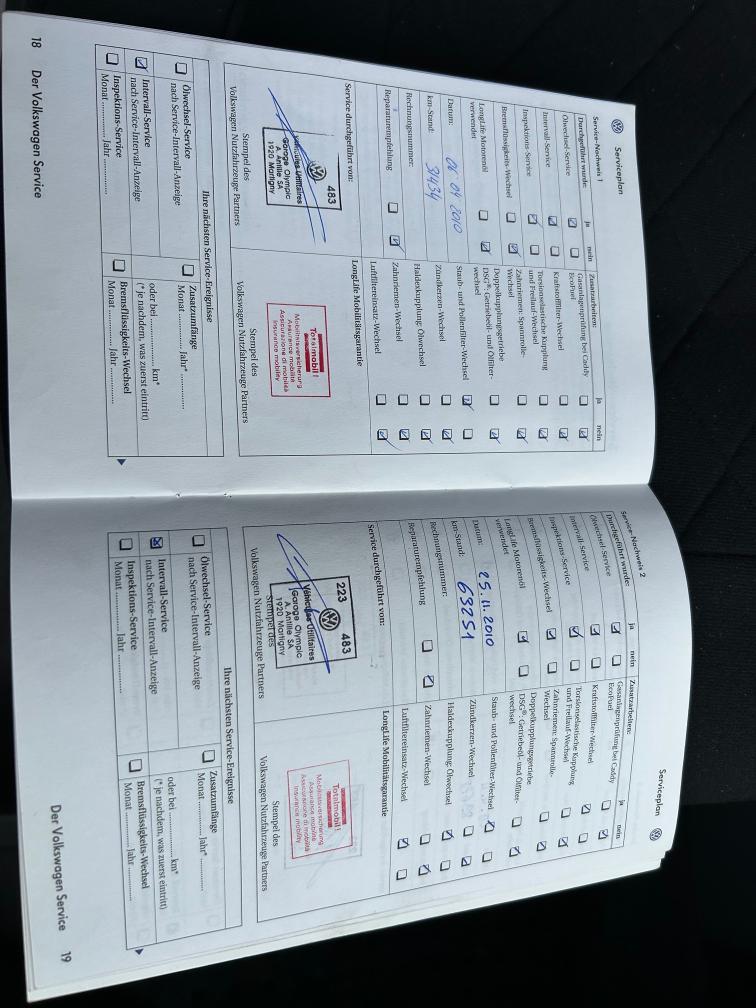 Serviceplan
Service-Nachweis 1
Durchgeführt wurde: ja nein
Ölwechsel-Service
Intervall-Service
Inspektions-Service
Bremsflüssigkeits-Wechsel
LongLife Motorenöl
verwendet
Datum: 06 04 2010
km-Stand: 31434
Rechnungsnummer:
Reparaturempfehlung
Zusatzarbeiten: ja nein
Gasanlagenprüfung bei Caddy
EcoFuel
Kraftstofffilter-Wechsel
Torsionselastische Kupplung
und Freilauf-Wechsel
Zahnriemen: Spannrolle-
Wechsel
Doppelkupplungsgetriebe
DSG®: Getriebeöl- und Ölfilter-
wechsel
Staub- und Pollenfilter-Wechsel
Zündkerzen-Wechsel
Haldexkupplung: Ölwechsel
Zahnriemen-Wechsel
Luftfiltereinsatz-Wechsel
Service durchgeführt von:
483
Véhicules Utilitaires
Garage Olympic
A. Antille SA
1920 Martigny
Stempel des
Volkswagen Nutzfahrzeuge Partners
LongLife Mobilitätsgarantie
Totalmobil!
Mobilitätsversicherung
Assurance mobilité
Assicurazione di mobilità
Insurance mobility
Stempel des
Volkswagen Nutzfahrzeuge Partners
Ihre nächsten Service-Ereignisse
Ölwechsel-Service
nach Service-Intervall-Anzeige
Intervall-Service
nach Service-Intervall-Anzeige
Inspektions-Service
Monat ............ Jahr ............
Zusatzumfänge
Monat ............ Jahr* ............
oder bei ............ km*
(* je nachdem, was zuerst eintritt)
Bremsflüssigkeits-Wechsel
Monat ............ Jahr ............
18 Der Volkswagen Service
Serviceplan
Service-Nachweis 2
Durchgeführt wurde: ja nein
Ölwechsel-Service
Intervall-Service
Inspektions-Service
Bremsflüssigkeits-Wechsel
LongLife Motorenöl
verwendet
Datum: 25.11.2010
km-Stand: 63251
Rechnungsnummer:
Reparaturempfehlung
Zusatzarbeiten: ja nein
Gasanlagenprüfung bei Caddy
EcoFuel
Kraftstofffilter-Wechsel
Torsionselastische Kupplung
und Freilauf-Wechsel
Zahnriemen: Spannrolle-
Wechsel
Doppelkupplungsgetriebe
DSG®: Getriebeöl- und Ölfilter-
wechsel
Staub- und Pollenfilter-Wechsel
Zündkerzen-Wechsel
Haldexkupplung: Ölwechsel
Zahnriemen-Wechsel
Luftfiltereinsatz-Wechsel
Service durchgeführt von:
223 483
Véhicules Utilitaires
Garage Olympic
A. Antille SA
1920 Martigny
Stempel des
Volkswagen Nutzfahrzeuge Partners
LongLife Mobilitätsgarantie
Totalmobil!
Mobilitätsversicherung
Assurance mobilité
Assicurazione di mobilità
Insurance mobility
Stempel des
Volkswagen Nutzfahrzeuge Partners
Ihre nächsten Service-Ereignisse
Ölwechsel-Service
nach Service-Intervall-Anzeige
Intervall-Service
nach Service-Intervall-Anzeige
Inspektions-Service
Monat ............ Jahr ............
Zusatzumfänge
Monat ............ Jahr* ............
oder bei ............ km*
(* je nachdem, was zuerst eintritt)
Bremsflüssigkeits-Wechsel
Monat ............ Jahr ............
Der Volkswagen Service 19